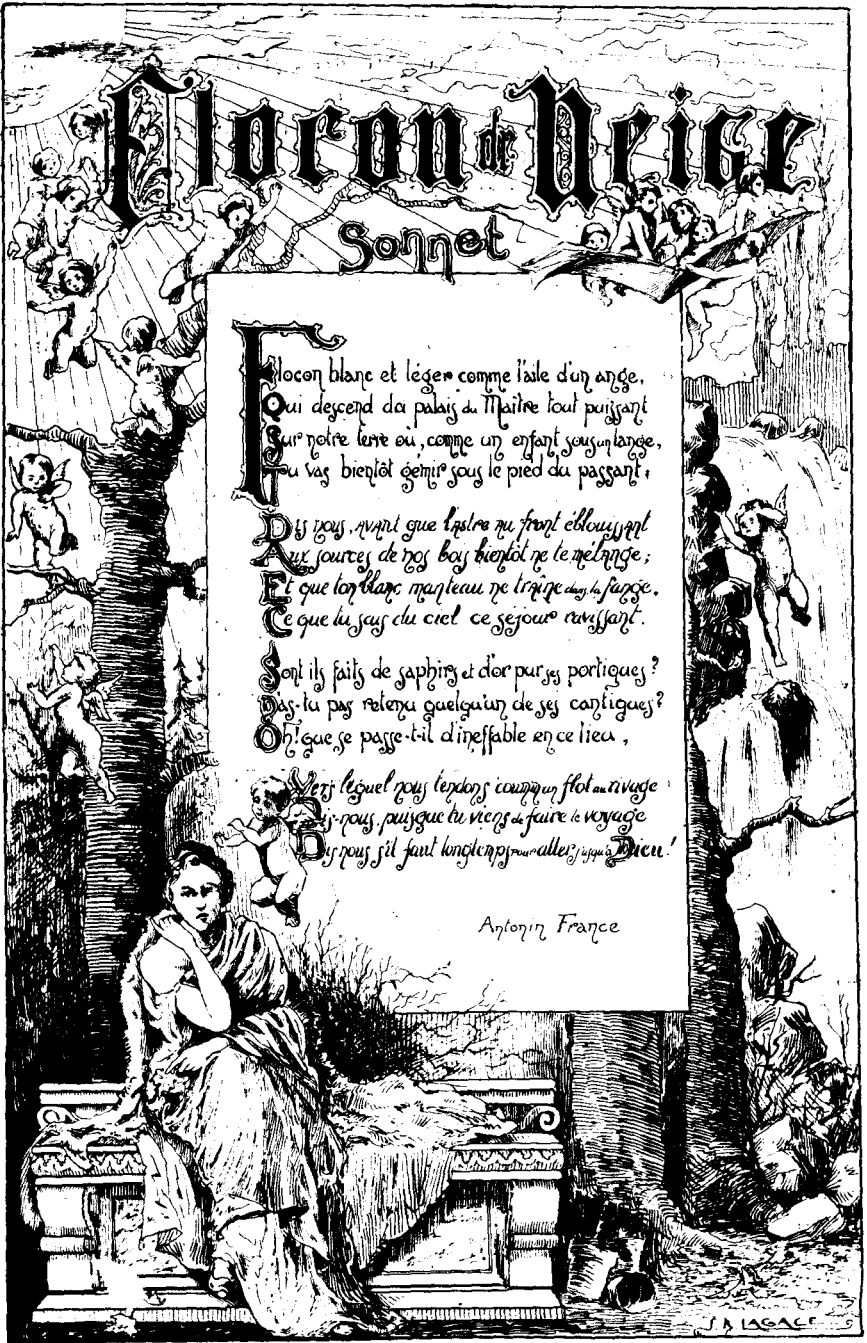 Flocon de Neige
Sonnet
Flocon blanc et léger comme l'aile d'un ange,
Qui descend du palais du Maître tout puissant
Sur notre terre où, comme un enfant sous un lange,
Tu vas bientôt gémir sous le pied du passant,
Dis nous, avant que l'astre au front éblouissant
Aux sources de nos bois bientôt ne te mélange;
Et que ton blanc manteau ne traîne dans la fange,
Ce que tu sais du ciel ce séjour ravissant.
Sont ils faits de saphirs et d'or pur ses portiques?
N'as-tu pas retenu quelqu'un de ses cantiques?
Oh! que se passe-t-il d'ineffable en ce lieu,
Vers lequel nous tendons comme un flot au rivage
Dis-nous, puisque tu viens de faire le voyage
Dis nous s'il faut longtemps pour aller jusqu'à Dieu!
Antonin France
LAGACÉ